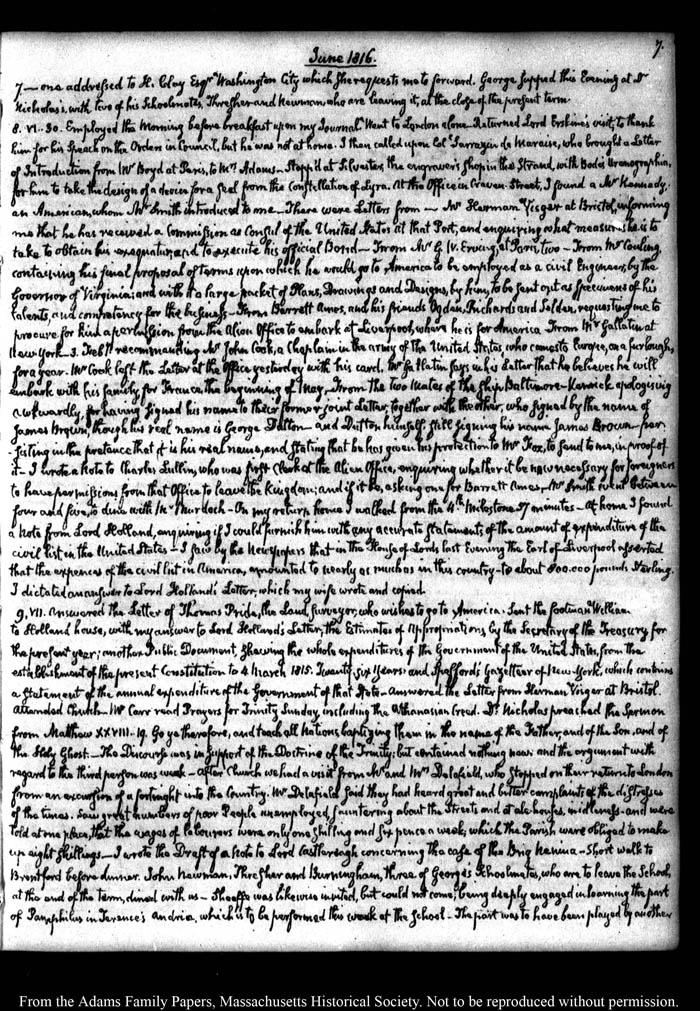 7.
June 1816.
7.— one addressed to H. Clay Esqr. Washington City which she requests me to forward. George supped this Evening at Dr
Nicholas's, with two of his Schoolmates, Thresher and Newman, who are leaving it, at the close of the present term.
8. VI. 30. Employed the Morning before breakfast upon my Journal. Went to London alone. Returned Lord Erskine's visit, to thank
him for his Speech on the Orders in Council, but he was not at home. I then called upon Col. Sarrazin de Maraise, who brought a Letter
of Introduction from Mr Boyd at Paris, to Mrs Adams. Stopp'd at Silvester, the engraver's shop in the Strand, with Bode's Uranographia,
for him to take the design of a device for a Seal from the Constellation of Lyra. At the Office in Craven-Street, I found a Mr Kennedy,
an American, whom Mr Smith introduced to me. There were Letters from — Mr Herman Visger at Bristol, informing
me that he has received a Commission as Consul of the United States at that Port, and enquiring what measures he is to
take to obtain his exequatur, and to execute his official Bond — From Mr G. W. Erving, at Paris, two — From Mr Couling,
containing his final proposal of terms upon which he would go to America to be employed as a civil Engineer, by the
Governor of Virginia; and with it a large packet of Plans, Drawings and Designs, by him, to be sent out as specimens of his
talents, and competency for the business — From Barrett Amos, and his friends Ogden, Prichards and Selden, requesting me to
procure for him a permission from the Alien Office to embark at Liverpool, where he is for America. From Mr Gallatin at
New York — 3. Feby recommending Mr John Cook, a Chaplain in the army of the United States, who comes to Europe, on a furlough,
for a year. Mr Cook left the Letter at the Office yesterday with his card. Mr Gallatin says in his Letter that he believes he will
embark with his family for France the beginning of May. From the two Mates of the Ship Baltimore — Kenrick apologising
awkwardly, for having signed his name to their former joint Letter, together with the other, who signed by the name of
James Brown, though his real name is George Dutton — and Dutton himself, still signing his name James Brown — per-
-sisting in the pretence that it is his real name, and stating that he has given his protection to Mr Fox, to send to me, in proof of
it — I wrote a Note to Charles Lullin, who was first Clerk at the Alien Office, enquiring whether it be now necessary for foreigners
to have permissions from that Office to leave the Kingdom; and if it be, asking one for Barrett Amos. Mr Smith went between
four and five, to dine with Mr Murdoch — On my return home I walked from the 4th Milestone 57 minutes — At home I found
a Note from Lord Holland, enquiring if I could furnish him with any accurate Statement; of the amount of expenditure of the
civil list in the United States — I saw by the Newspapers that in the House of Lords last Evening the Earl of Liverpool asserted
that the expences of the civil list in America, amounted to nearly as much as in this country — to about 800.000 pounds Sterling.
I dictated an answer to Lord Holland's Letter, which my wife wrote and copied.
9. VII. Answered the Letter of Thomas Pride, the Land surveyor, who wishes to go to America. Sent the footman William
to Holland house, with my answer to Lord Holland's Letter, the Estimates of Appropriations, by the Secretary of the Treasury for
the present year; another Public Document, shewing the whole expenditures of the Government of the United States, from the
establishment of the present Constitution to 4 March 1815. Twenty-six Years; and Spafford's Gazetteer of New-York, which contains
a Statement of the annual expenditure of the Government of that State — Answered the Letter from Herman Visger at Bristol.
Attended Church — Mr Carr read Prayers for Trinity Sunday, including the Athanasian Creed. Dr Nicholas preached the Sermon
from Matthew XXVIII. 19. Go ye therefore, and teach all Nations, baptizing them in the name of the Father, and of the Son, and of
the Holy Ghost. — The Discourse was in support of the Doctrine of the Trinity; but contained nothing new and the argument with
regard to the third person was weak — after Church we had a visit from Mr and Mrs Delafield, who stopped on their return to London
from an excursion of a fortnight into the Country. Mr Delafield said they had heard great and bitter complaints of the distresses
of the times. Saw great numbers of poor People unemployed, sauntering about the Streets and at ale-houses, in idleness — and were
told at one place, that the wages of labourers were only one shilling and six pence a week, which the Parish were obliged to make
up eight shillings — I wrote the Draft of a Note to Lord Castlereagh concerning the case of the Brig Nanina — Short walk to
Brentford before dinner. John Newman, Thresher and Burmingham, three of George's Schoolmates, who are to leave the School,
at the end of the term, dined with us — Sheaffe was likewise invited, but could not come; being deeply engaged in learning the part
of Pamphilus in Terence's Andria, which is to be performed this week at the School — The part was to have been played by another
From the Adams Family Papers, Massachusetts Historical Society. Not to be reproduced without permission.